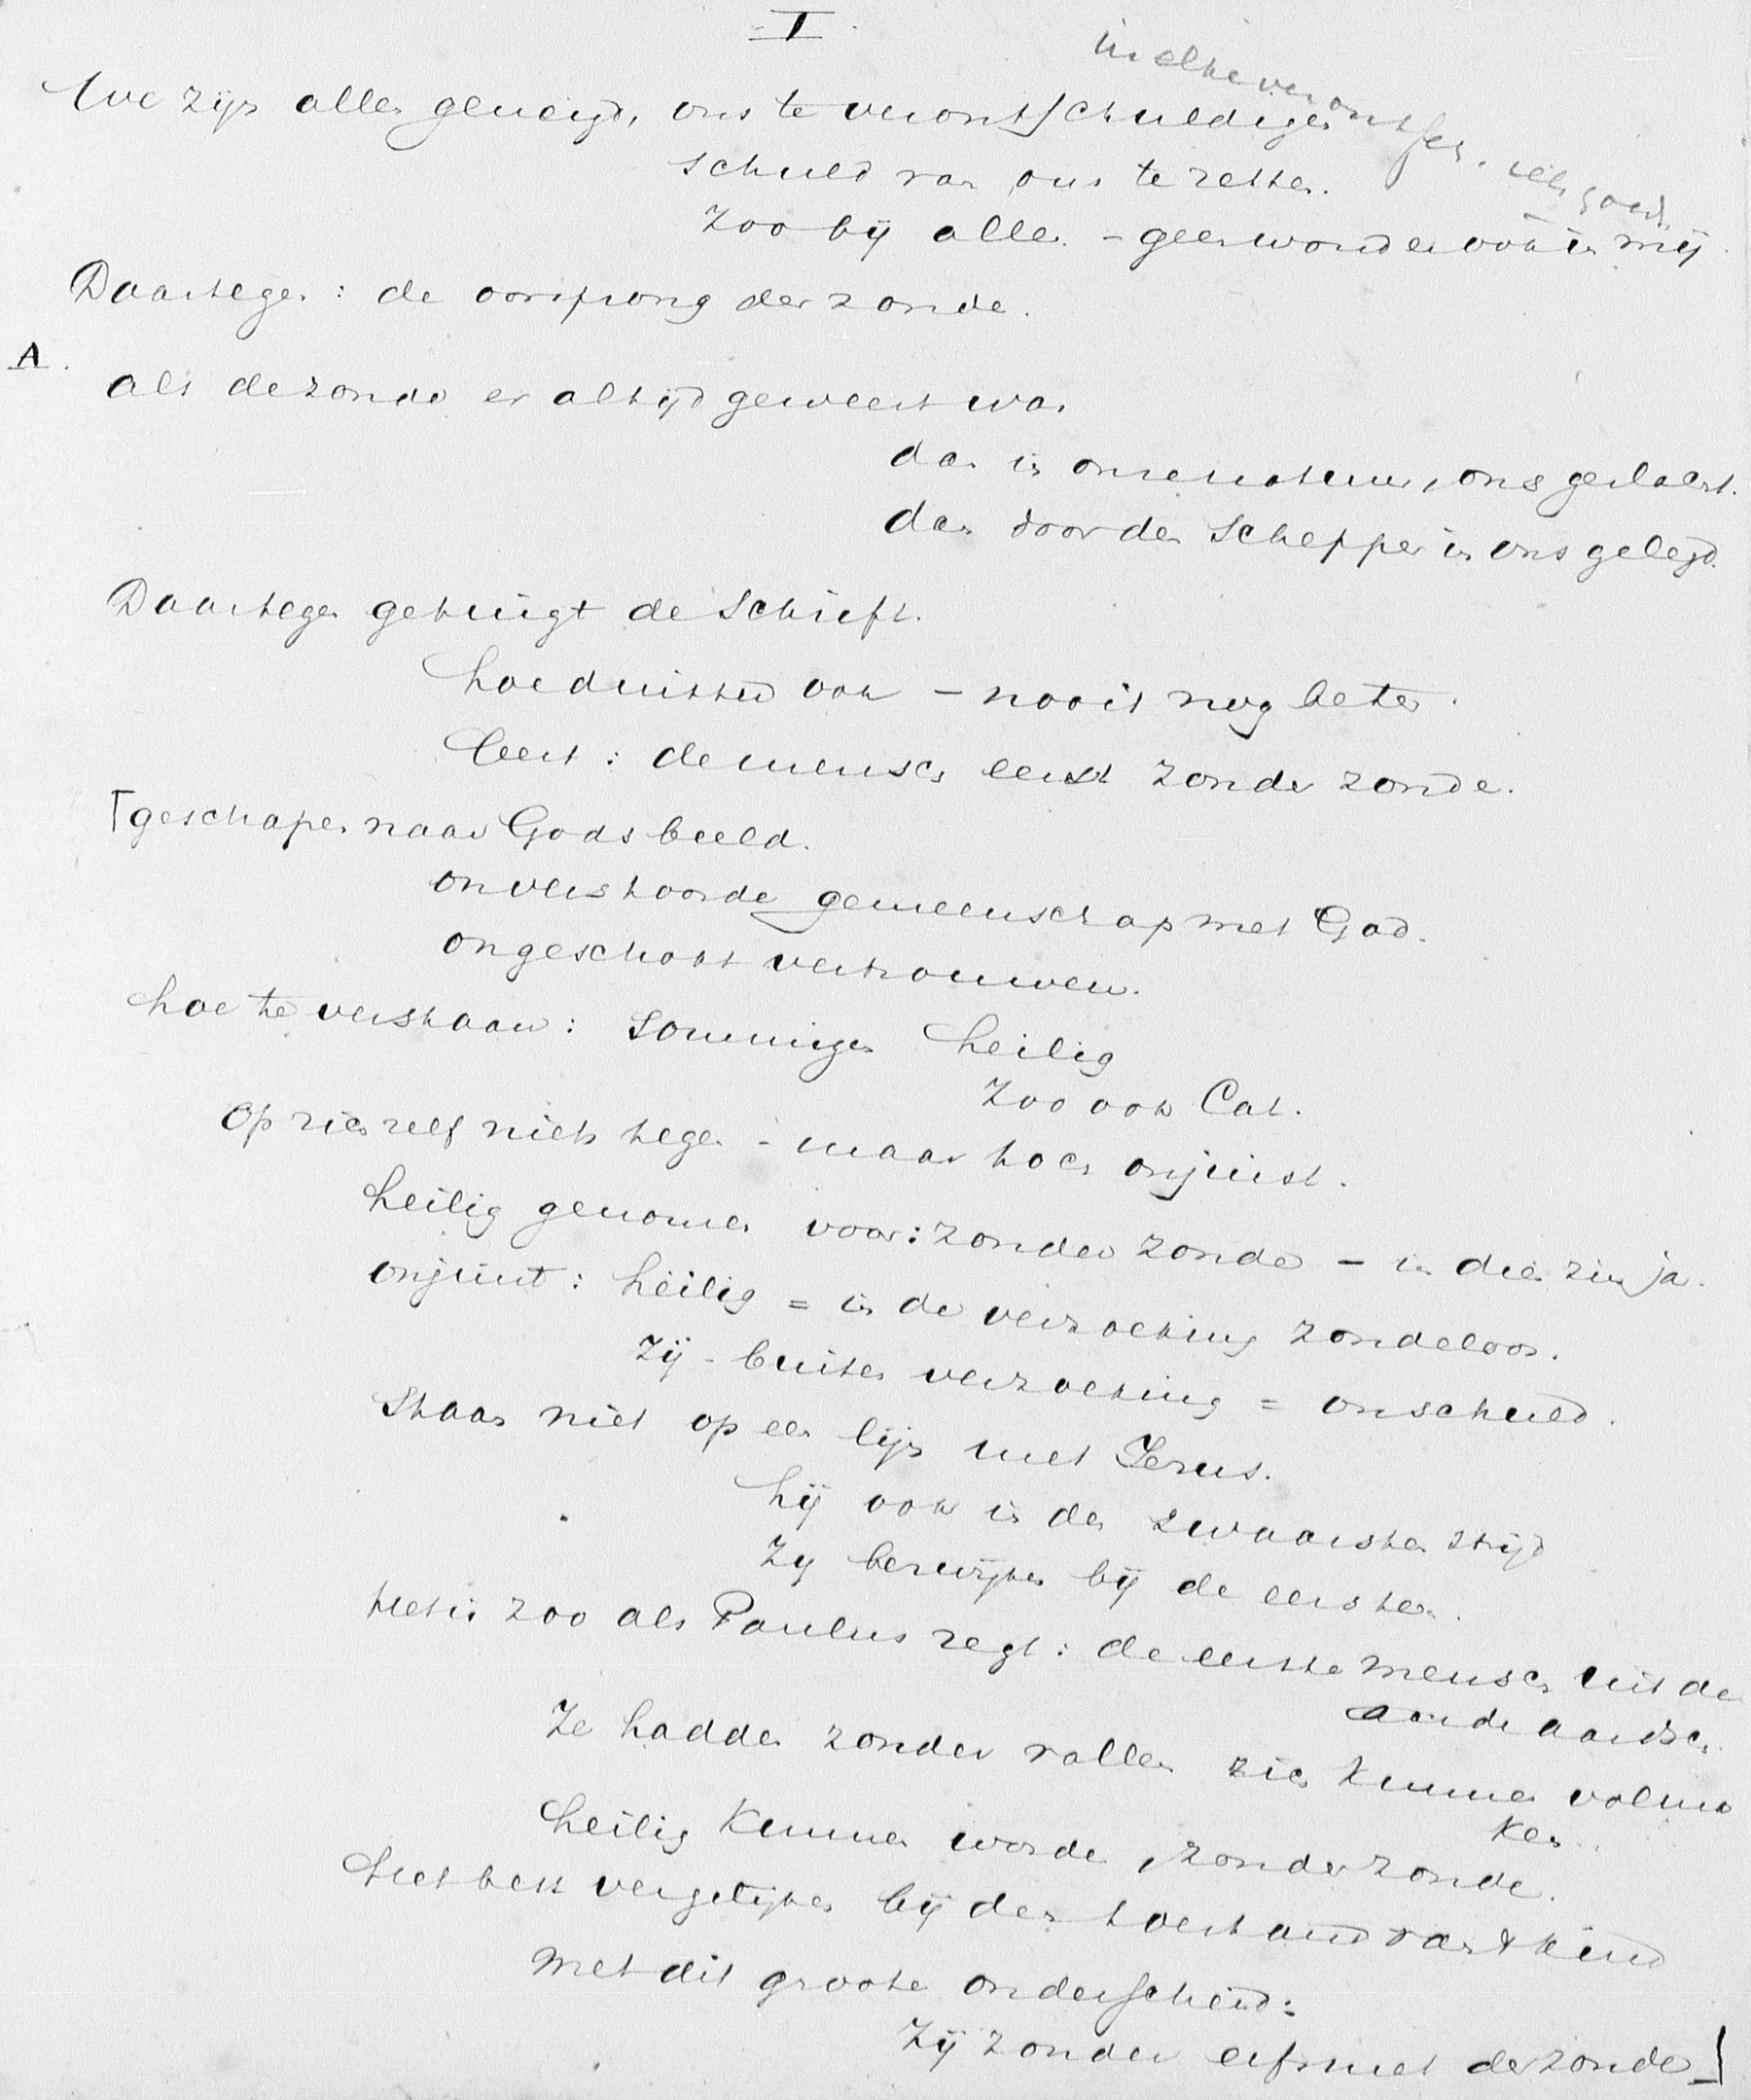 I.
in elke verontsch. iets goeds.
We zijn allen geneigd, ons te verontschuldigen
schuld van ons te zetten.
Zoo bij allen - geen wonder ook in mij.
Daartegen: de oorsprong der zonde.
A.
als de zonde er altijd geweest was
dan is onze natuur, ons geslacht.
dan door den Schepper in ons gelegd.
Daartegen getuigt de Schrift.
hoe duister ook - nooit nog beter.
leert: de mensch eerst zonder zonde.
[geschapen naar Gods beeld.
onverstoorde gemeenschap met God.
ongeschokt vertrouwen.
hoe te verstaan: Sommigen heilig
Zoo ook Cat.
op zich zelf niets tegen - maar toch onjuist.
heilig genomen voor: zonder zonde - in dien zin ja.
onjuist: heilig = in de verzoeking zondeloos.
Zij - buiten verzoeking = onschuld.
Staan niet op een lijn met Jezus.
hij ook in den zwaarsten strijd
Zij bezwijken bij de eersten.
Het is zoo als Paulus zegt: de eerste mensch uit de
aarde aardsch.
Ze hadden zonder vallen zich kunnen volma
ken.
heilig kunnen worden, zonder zonde.
Het best vergelijken bij den toestand van 't kind
met dit groote onderscheid:
Zij zonder erfsmet der zonde]